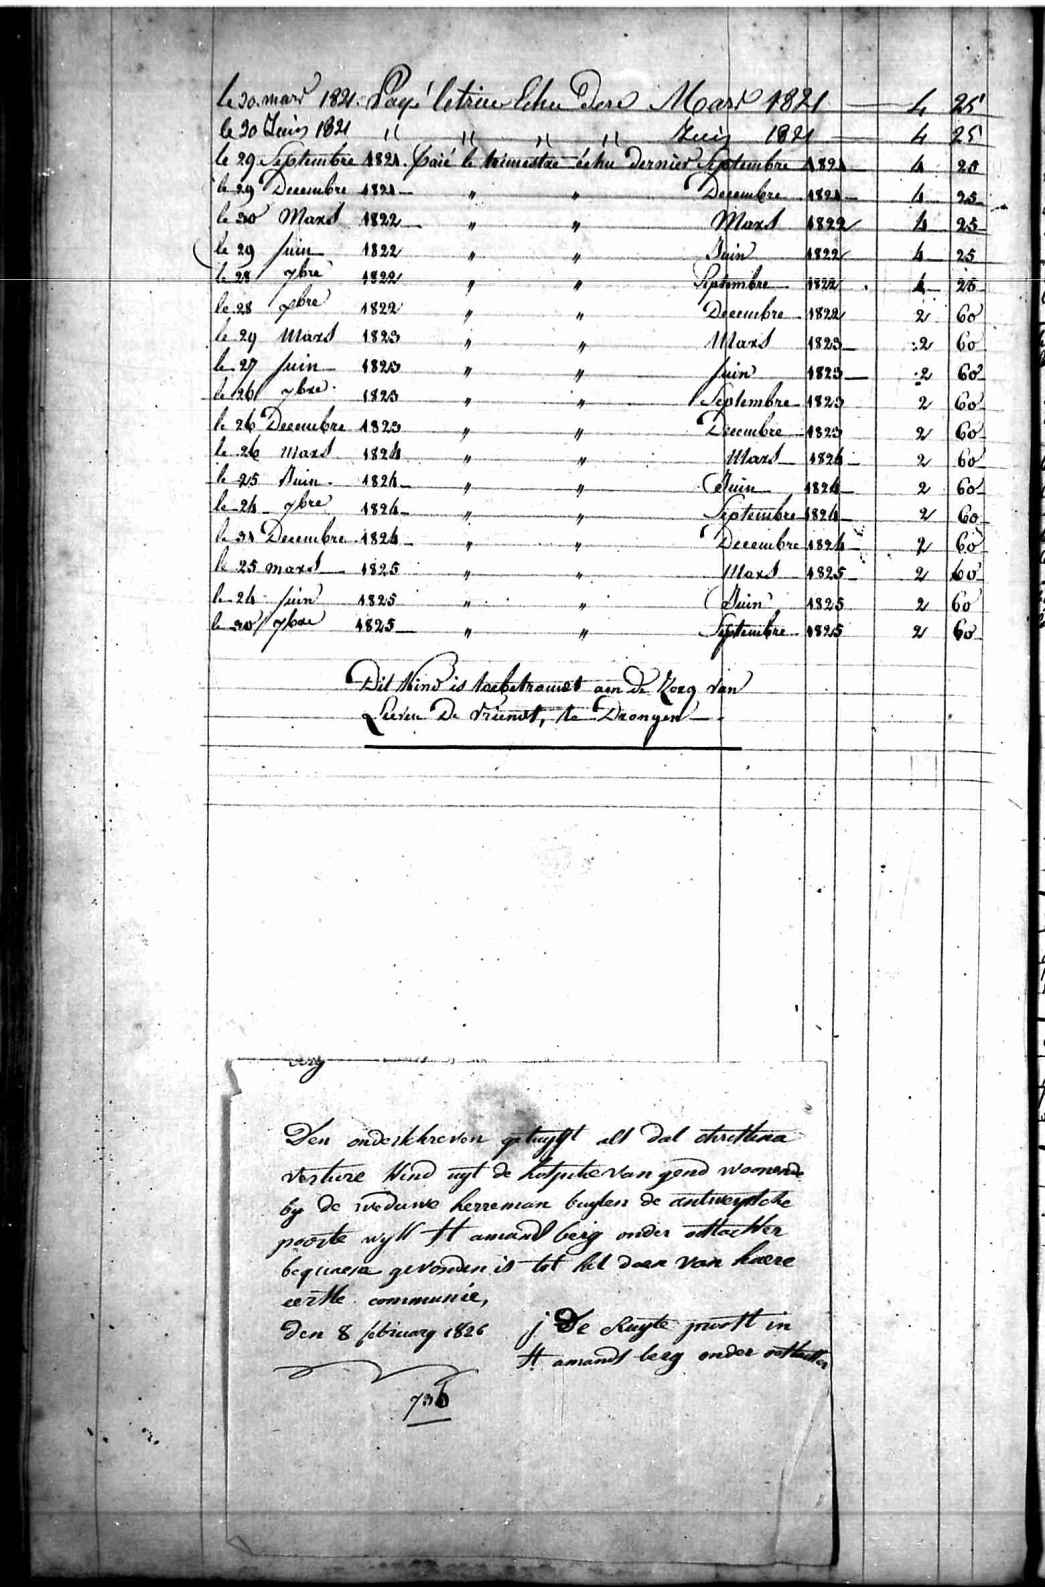 le 30 mars 1821 Payé le trim Echu Dere Mars 1821 4 25
le 30 Juin 1821 " " " " Juin 1821 4 25
le 29 Septembre 1821. paié le trimestre échu dernier Septembre 1821 4 25
le 29 Decembre 1821 " " Decembre 1821 4 25
le 30 Mars 1822 " " Mars 1822 4 25
le 29 Juin 1822 " " Juin 1822 4 25
le 28 7bre 1822 " " Septembre 1822 4 25
le 28 xbre 1822 " " Decembre 1822 2 60
le 29 Mars 1823 " " Mars 1823 2 60
le 27 Juin 1823 " " Juin 1823 2 60
le 26 7bre 1823 " " Septembre 1823 2 60
le 26 Decembre 1823 " " Decembre 1823 2 60
le 26 Mars 1824 " " Mars 1824 2 60
le 25 Juin 1824 " " Juin 1824 2 60
le 24 7bre 1824 " " Septembre 1824 2 60
le 31 Decembre 1824 " " Decembre 1824 2 60
le 25 mars 1825 " " Mars 1825 2 60
le 24 Juin 1825 " " Juin 1825 2 60
le 30 7bre 1825 " " Septembre 1825 2 60
Dit Kind is toebetrouwt aen de Zorg van
Lieven De Vriendt, te Drongen
Den onderschreven getuygt als dat christina
verture kind uyt de hospitie van gend woonende
by de weduwe herreman buyten de antwerpsche
poorte wyk St amands berg onder oostacker
bequaem gevonden is tot het doen van haere
eerste communie,
den 8 february 1826 j De Ruyte proost in
St amands berg onder oostacker
736